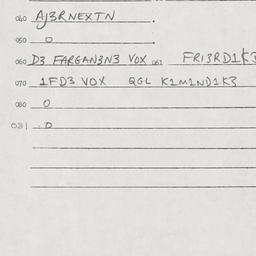 040 AJ3RNEXTN .
050 0 .
060 D3 FARGAN3N3 VOX 061 FRI3RD1K3
070 1FD3 VOX QGL K1M1ND1K3
080 0
031 . D